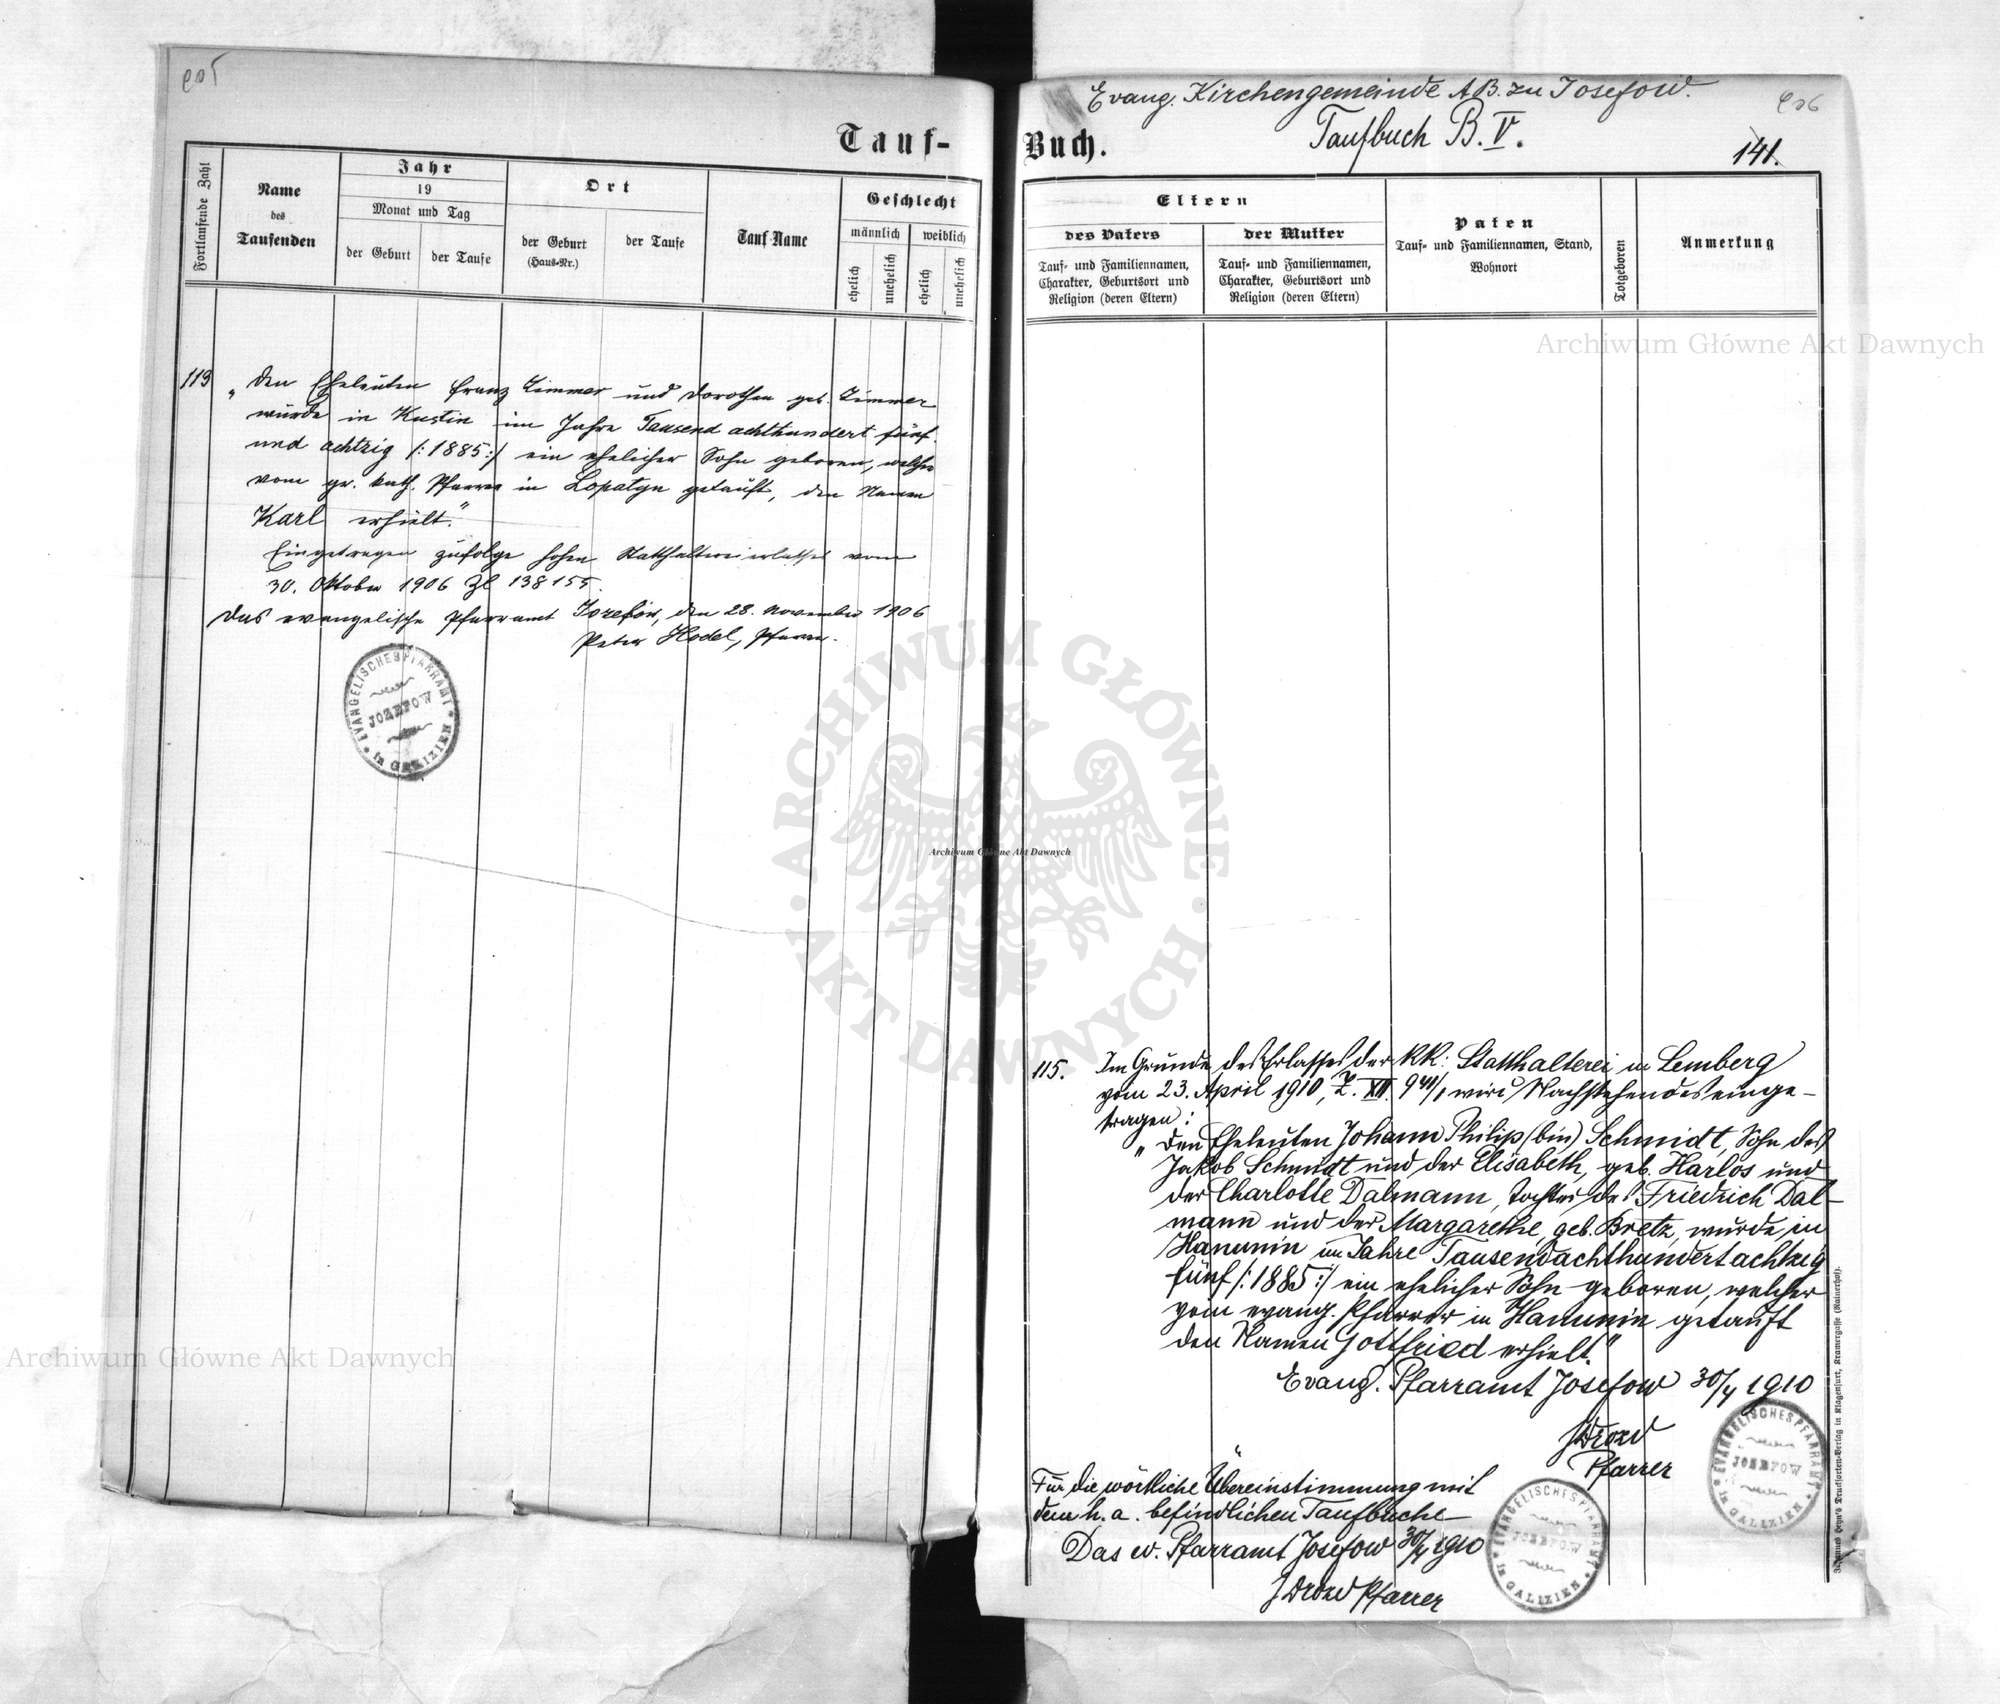 905
Tauf-
Fortlaufende Zahl
Name
des
Taufenden
Jahr
19
Monat und Tag
der Geburt
der Taufe
Ort
der Geburt
(Haus-Nr.)
der Taufe
Tauf-Name
Geschlecht
männlich
weiblich
ehelich
unehelich
ehelich
unehelich
113
"Den Eheleuten Franz Zimmer und Dorothea geb. Zimmer
wurde in Kustin im Jahre Tausend achthundert fünf
und achtzig /:1885:/ ein ehelicher Sohn geboren, welcher
vom gr. kath. Pfarrer in Lopatyn getauft, den Namen
Karl erhielt."
Eingetragen zufolge hohen Statthaltereierlasses vom
30. Oktober 1906 Zl 138155.
Das evangelische Pfarramt Josefów, den 28. November 1906
Peter Hodel, Pfarrer.
EVANGELISCHES PFARRAMT
JOZEFOW
in GALIZIEN
Evang. Kirchengemeinde A B. zu Josefow.
906
Buch.
Taufbuch B. V.
141.
Eltern
des Vaters
Tauf- und Familiennamen,
Charakter, Geburtsort und
Religion (deren Eltern)
der Mutter
Tauf- und Familiennamen,
Charakter, Geburtsort und
Religion (deren Eltern)
Paten
Tauf- und Familiennamen, Stand,
Wohnort
Totgeboren
Anmerkung
Archiwum Główne Akt Dawnych
ARCHIWUM GŁÓWNE
AKT DAWNYCH
Archiwum Główne Akt Dawnych
115.
Im Grunde des Erlasses der KK: Statthalterei in Lemberg
vom 23. April 1910, Z. XIII. wird Nachstehendes einge-
tragen:
"Den Eheleuten Johann Philip (bin) Schmidt, Sohn des
Jakob Schmidt und der Elisabeth, geb. Harlos und
der Charlotte Dalmann, Tochter des Friedrich Dal-
mann und der Margarethe, geb. Bretz, wurde in
Hanunin im Jahre Tausendachthundertachtzig
fünf /:1885:/ ein ehelicher Sohn geboren, welcher
vom evang. Pfarrer in Hanunin getauft
den Namen Gottfried erhielt."
Evang. Pfarramt Josefow 30/4 1910
JDrozd
Pfarrer
EVANGELISCHES PFARRAMT
JOZEFOW
in GALIZIEN
Für die wörtliche Übereinstimmung mit
dem h. a. befindlichen Taufbuche
Das ev. Pfarramt Josefow 30/4 1910
JDrozd Pfarrer
EVANGELISCHES PFARRAMT
JOZEFOW
in GALIZIEN
Archiwum Główne Akt Dawnych
Drucksorten-Verlag in Klagenfurt, Kramergasse (Rainerhof).